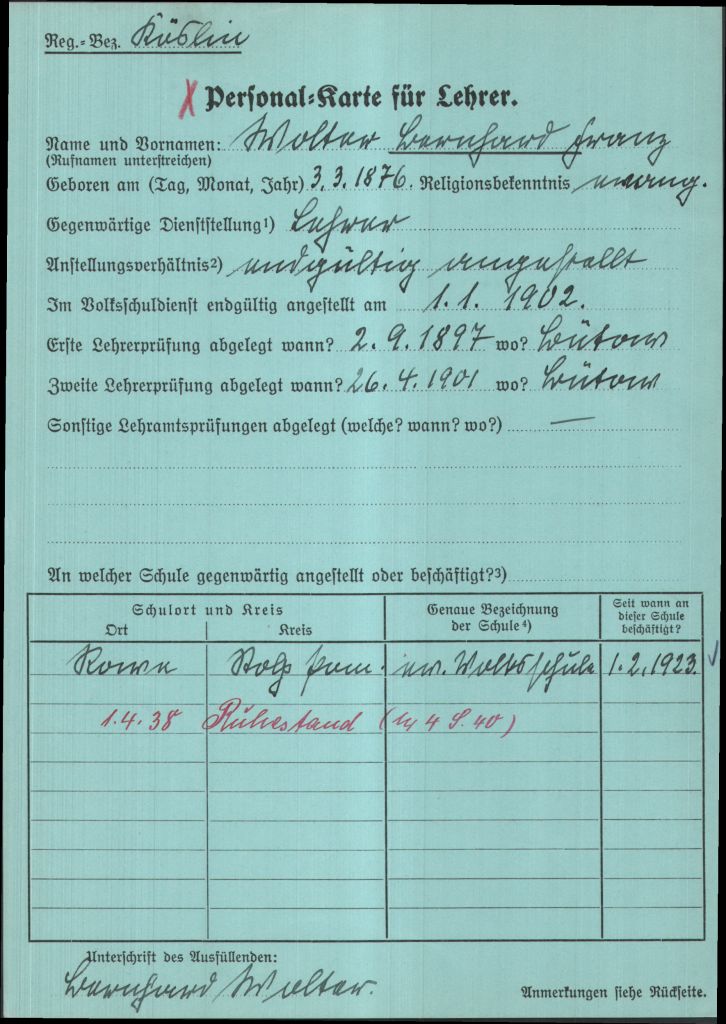 Reg.-Bez. Köslin
X Personal-Karte für Lehrer.
Name und Vornamen: Wolter Bernhard Franz
(Rufnamen unterstreichen)
Geboren am (Tag, Monat, Jahr) 3.3.1876. Religionsbekenntnis evang.
Gegenwärtige Dienststellung¹) Lehrer
Anstellungsverhältnis²) endgültig angestellt
Im Volksschuldienst endgültig angestellt am 1.1.1902.
Erste Lehrerprüfung abgelegt wann? 2.9.1897 wo? Bütow
Zweite Lehrerprüfung abgelegt wann? 26.4.1901 wo? Bütow
Sonstige Lehramtsprüfungen abgelegt (welche? wann? wo?) —
An welcher Schule gegenwärtig angestellt oder beschäftigt?³)
Schulort und Kreis
Ort Kreis
Genaue Bezeichnung
der Schule⁴)
Seit wann an
dieser Schule
beschäftigt?
Rowe Stolp Pom. ev. Volksschule 1.2.1923.
1.4.38 Ruhestand ( 4 S. 40)
Unterschrift des Ausfüllenden:
Bernhard Wolter.
Anmerkungen siehe Rückseite.